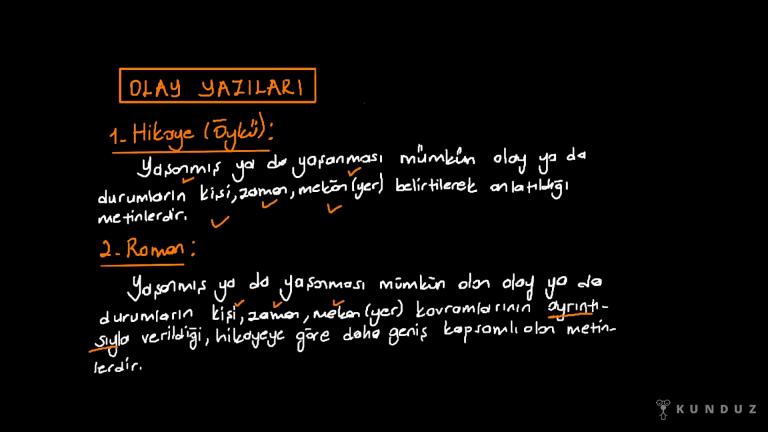 OLAY YAZILARI
1- Hikaye (Öykü):
Yaşanmış ya da yaşanması mümkün olay ya da
durumların kişi, zaman, mekân (yer) belirtilerek anlatıldığı
metinlerdir.
2- Roman:
Yaşanmış ya da yaşanması mümkün olan olay ya da
durumların kişi, zaman, mekan (yer) kavramlarının ayrıntı-
sıyla verildiği, hikayeye göre daha geniş kapsamlı olan metin-
lerdir.
KUNDUZ